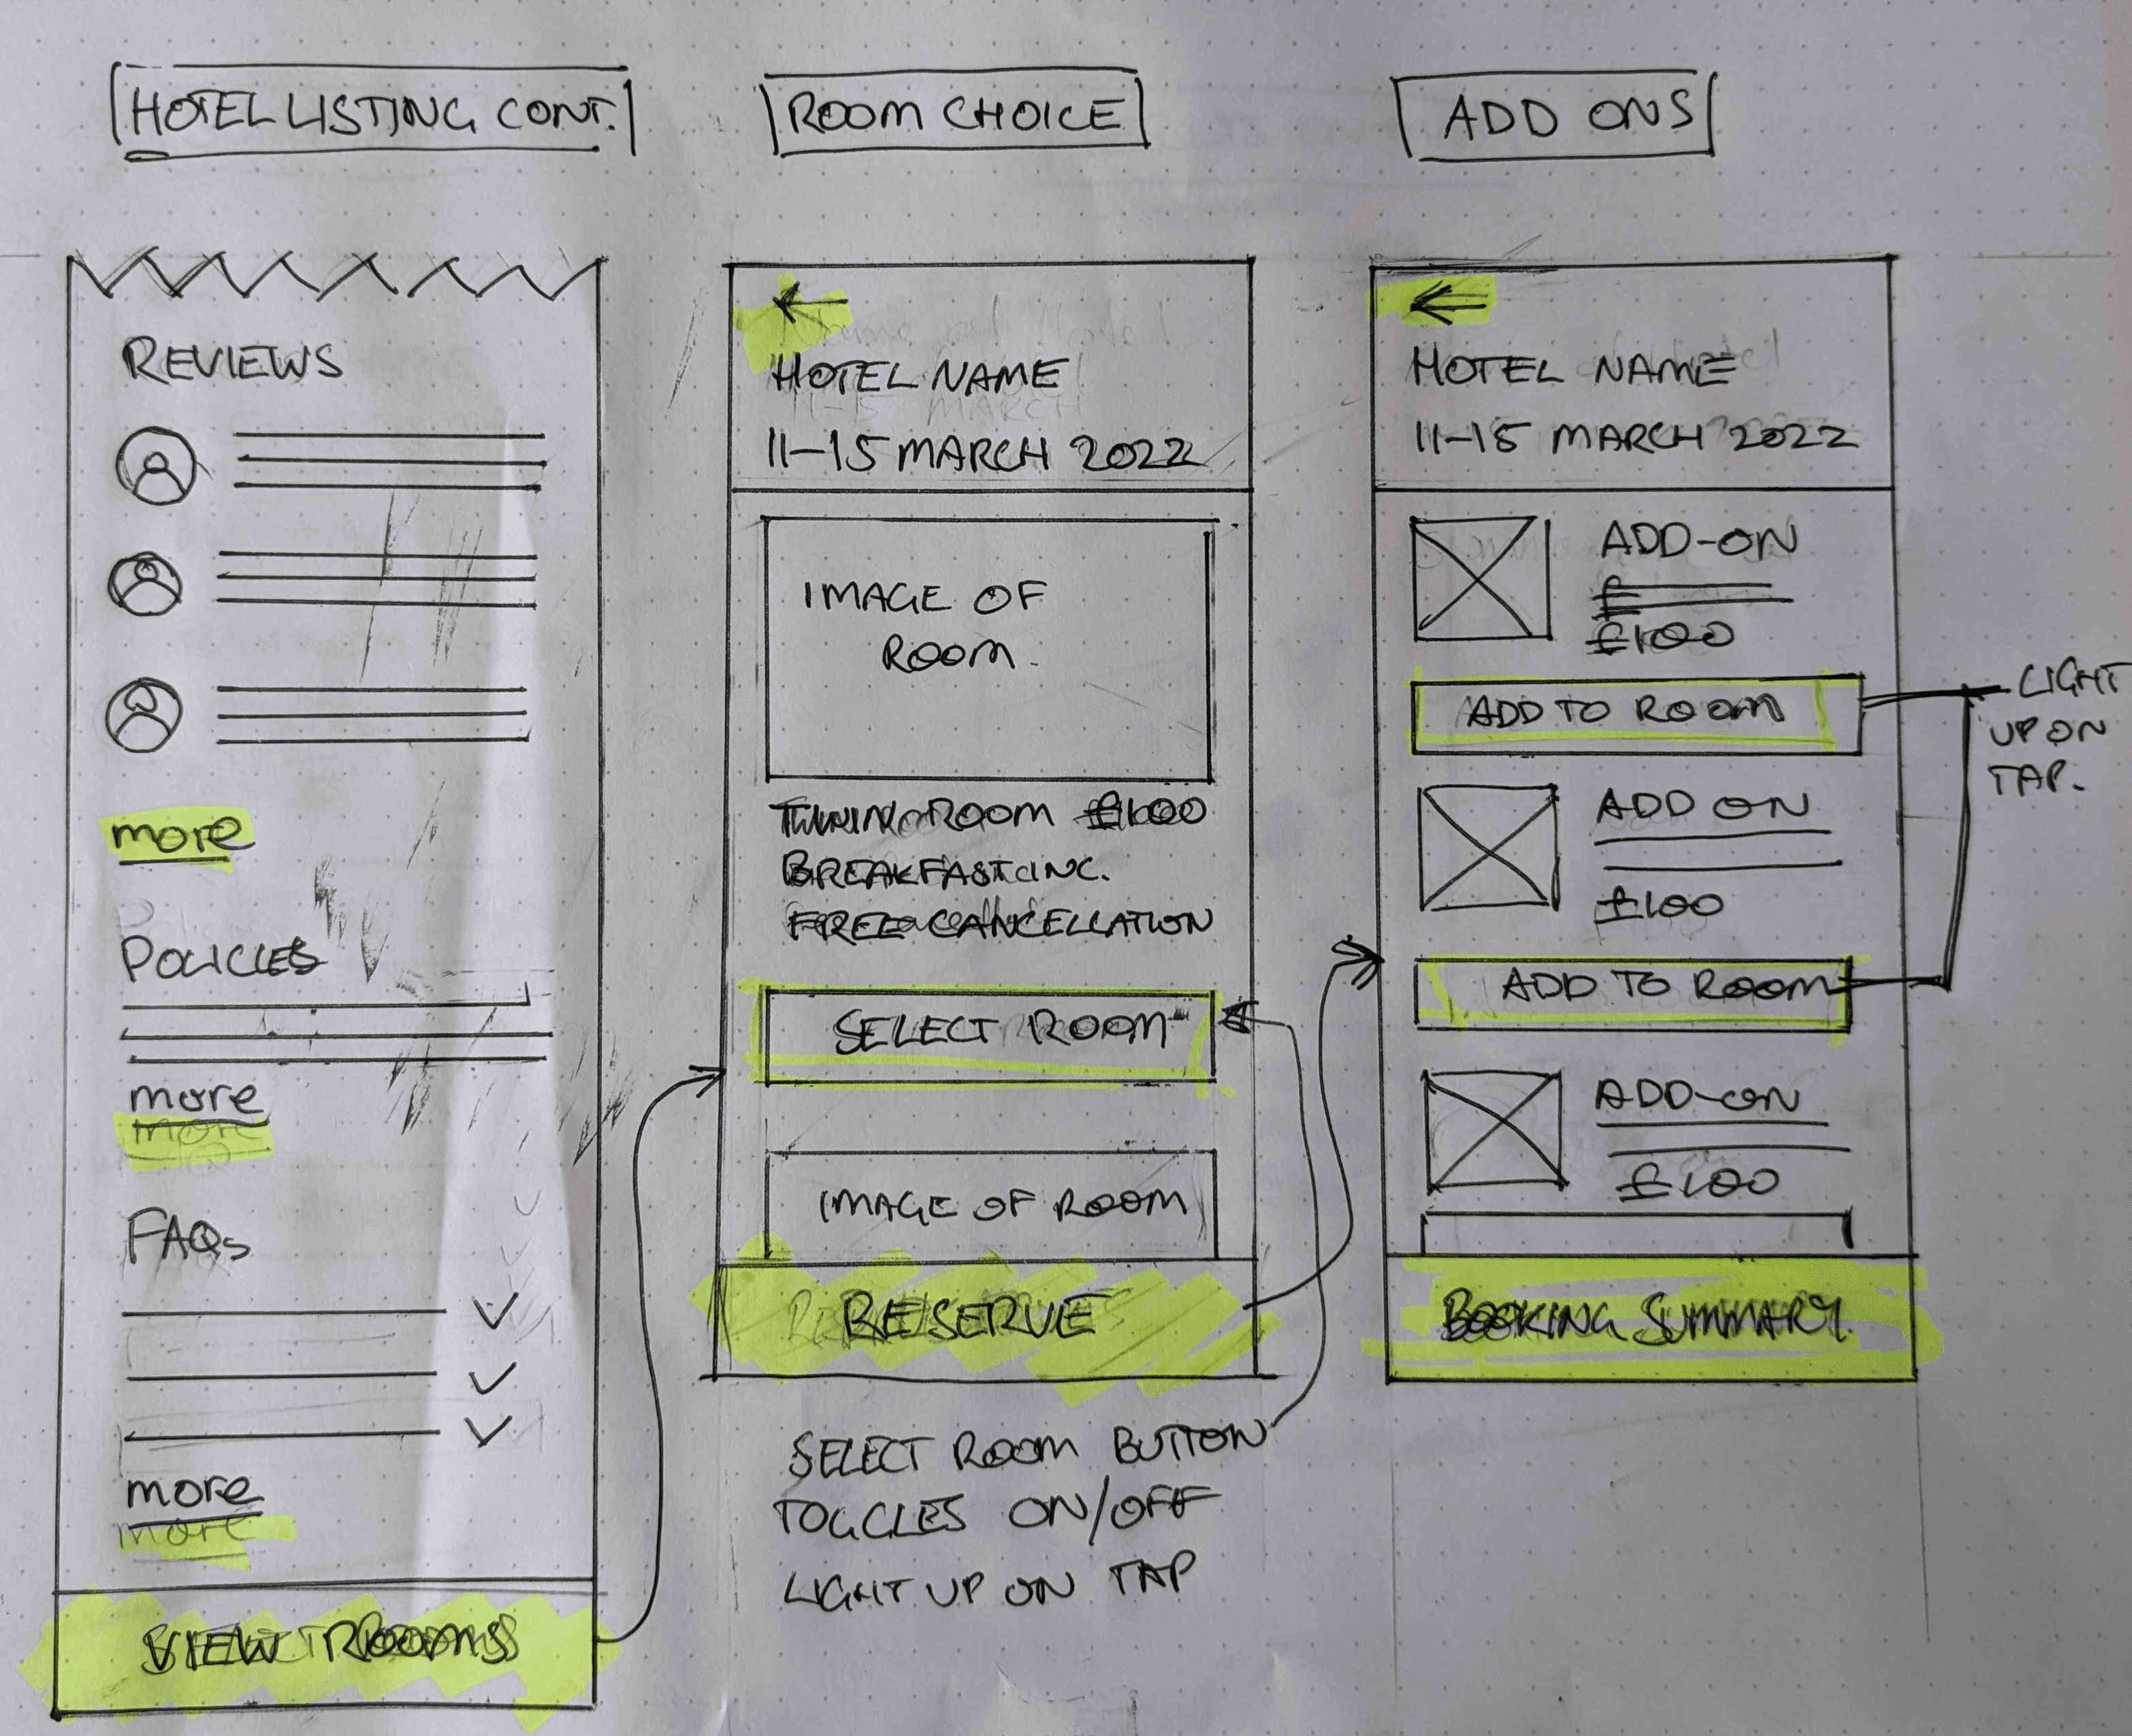 HOTEL LISTING CONT.
REVIEWS
more
POLICIES
more
more
FAQs
more
more
VIEW ROOMS
ROOM CHOICE
←
HOTEL NAME
11-15 MARCH
11-15 MARCH 2022
IMAGE OF
ROOM.
TWIN ROOM £100
BREAKFAST INC.
FREE CANCELLATION
SELECT ROOM
IMAGE OF ROOM
RESERVE
SELECT ROOM BUTTON
TOGGLES ON/OFF
LIGHT UP ON TAP
ADD ONS
←
HOTEL NAME
11-15 MARCH 2022
ADD-ON
£
£100
ADD TO ROOM
LIGHT
UP ON
TAP.
ADD ON
£100
ADD TO ROOM
ADD-ON
£100
BOOKING SUMMARY